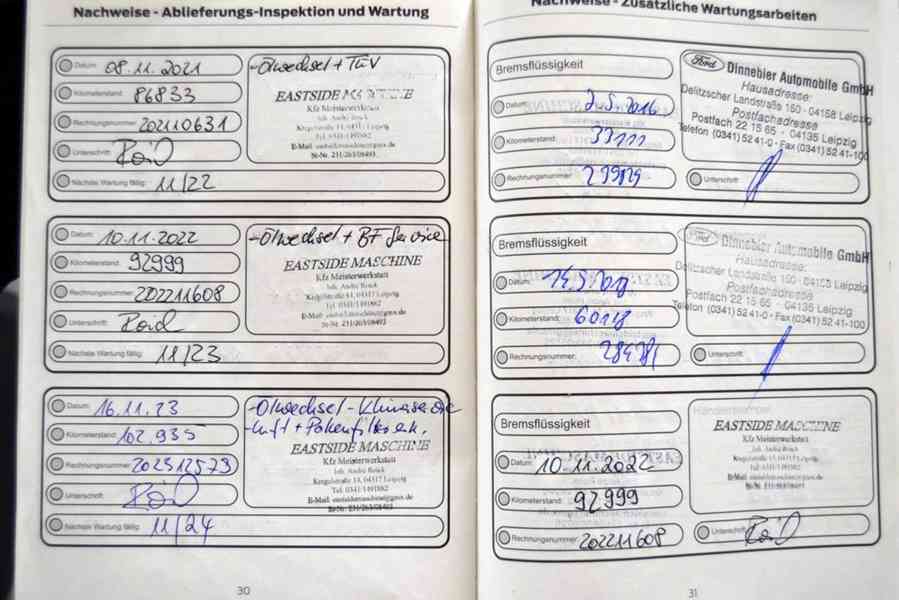 Nachweise - Ablieferungs-Inspektion und Wartung
Datum: 08.11.2021
Kilometerstand: 86833
Rechnungsnummer: 202110631
Unterschrift:
Nächste Wartung fällig: 11/22
-Ölwechsel + TÜV
EASTSIDE MASCHINE
Kfz Meisterwerkstatt
Inh. André Brück
Tel. 0341/1491882
St-Nr. 231/263/08493
Datum: 10.11.2022
Kilometerstand: 92999
Rechnungsnummer: 202211608
Unterschrift:
Nächste Wartung fällig: 11/23
-Ölwechsel + BF Service
EASTSIDE MASCHINE
Kfz Meisterwerkstatt
Inh. André Brück
04317 Leipzig
Tel. 0341/1491882
St-Nr. 231/263/08493
Datum: 16.11.23
Kilometerstand: 102.935
Rechnungsnummer: 202312573
Unterschrift:
Nächste Wartung fällig: 11/24
-Ölwechsel -Klimaservice
-Luft + Pollenfilter
EASTSIDE MASCHINE
Kfz Meisterwerkstatt
Inh. André Brück
04317 Leipzig
Tel. 0341/1491882
St-Nr. 231/263/08493
30
Nachweise - Zusätzliche Wartungsarbeiten
Bremsflüssigkeit
Datum: 2.5.2016
Kilometerstand:
Rechnungsnummer:
Unterschrift:
Ford Dinnebier Automobile GmbH
Hausadresse:
Delitzscher Landstraße 160 · 04158 Leipzig
Postfachadresse
Postfach 22 15 65 · 04135 Leipzig
Telefon (0341) 52 41-0 · Fax (0341) 52 41-100
Bremsflüssigkeit
Datum:
Kilometerstand: 60118
Rechnungsnummer:
Unterschrift:
Ford Dinnebier Automobile GmbH
Hausadresse:
Delitzscher Landstraße 160 · 04158 Leipzig
Postfachadresse
Postfach 22 15 65 · 04135 Leipzig
Telefon (0341) 52 41-0 · Fax (0341) 52 41-100
Bremsflüssigkeit
Datum: 10.11.2022
Kilometerstand: 92999
Rechnungsnummer: 202211608
Unterschrift:
Händlerstempel
EASTSIDE MASCHINE
Kfz Meisterwerkstatt
Inh. André Brück
31